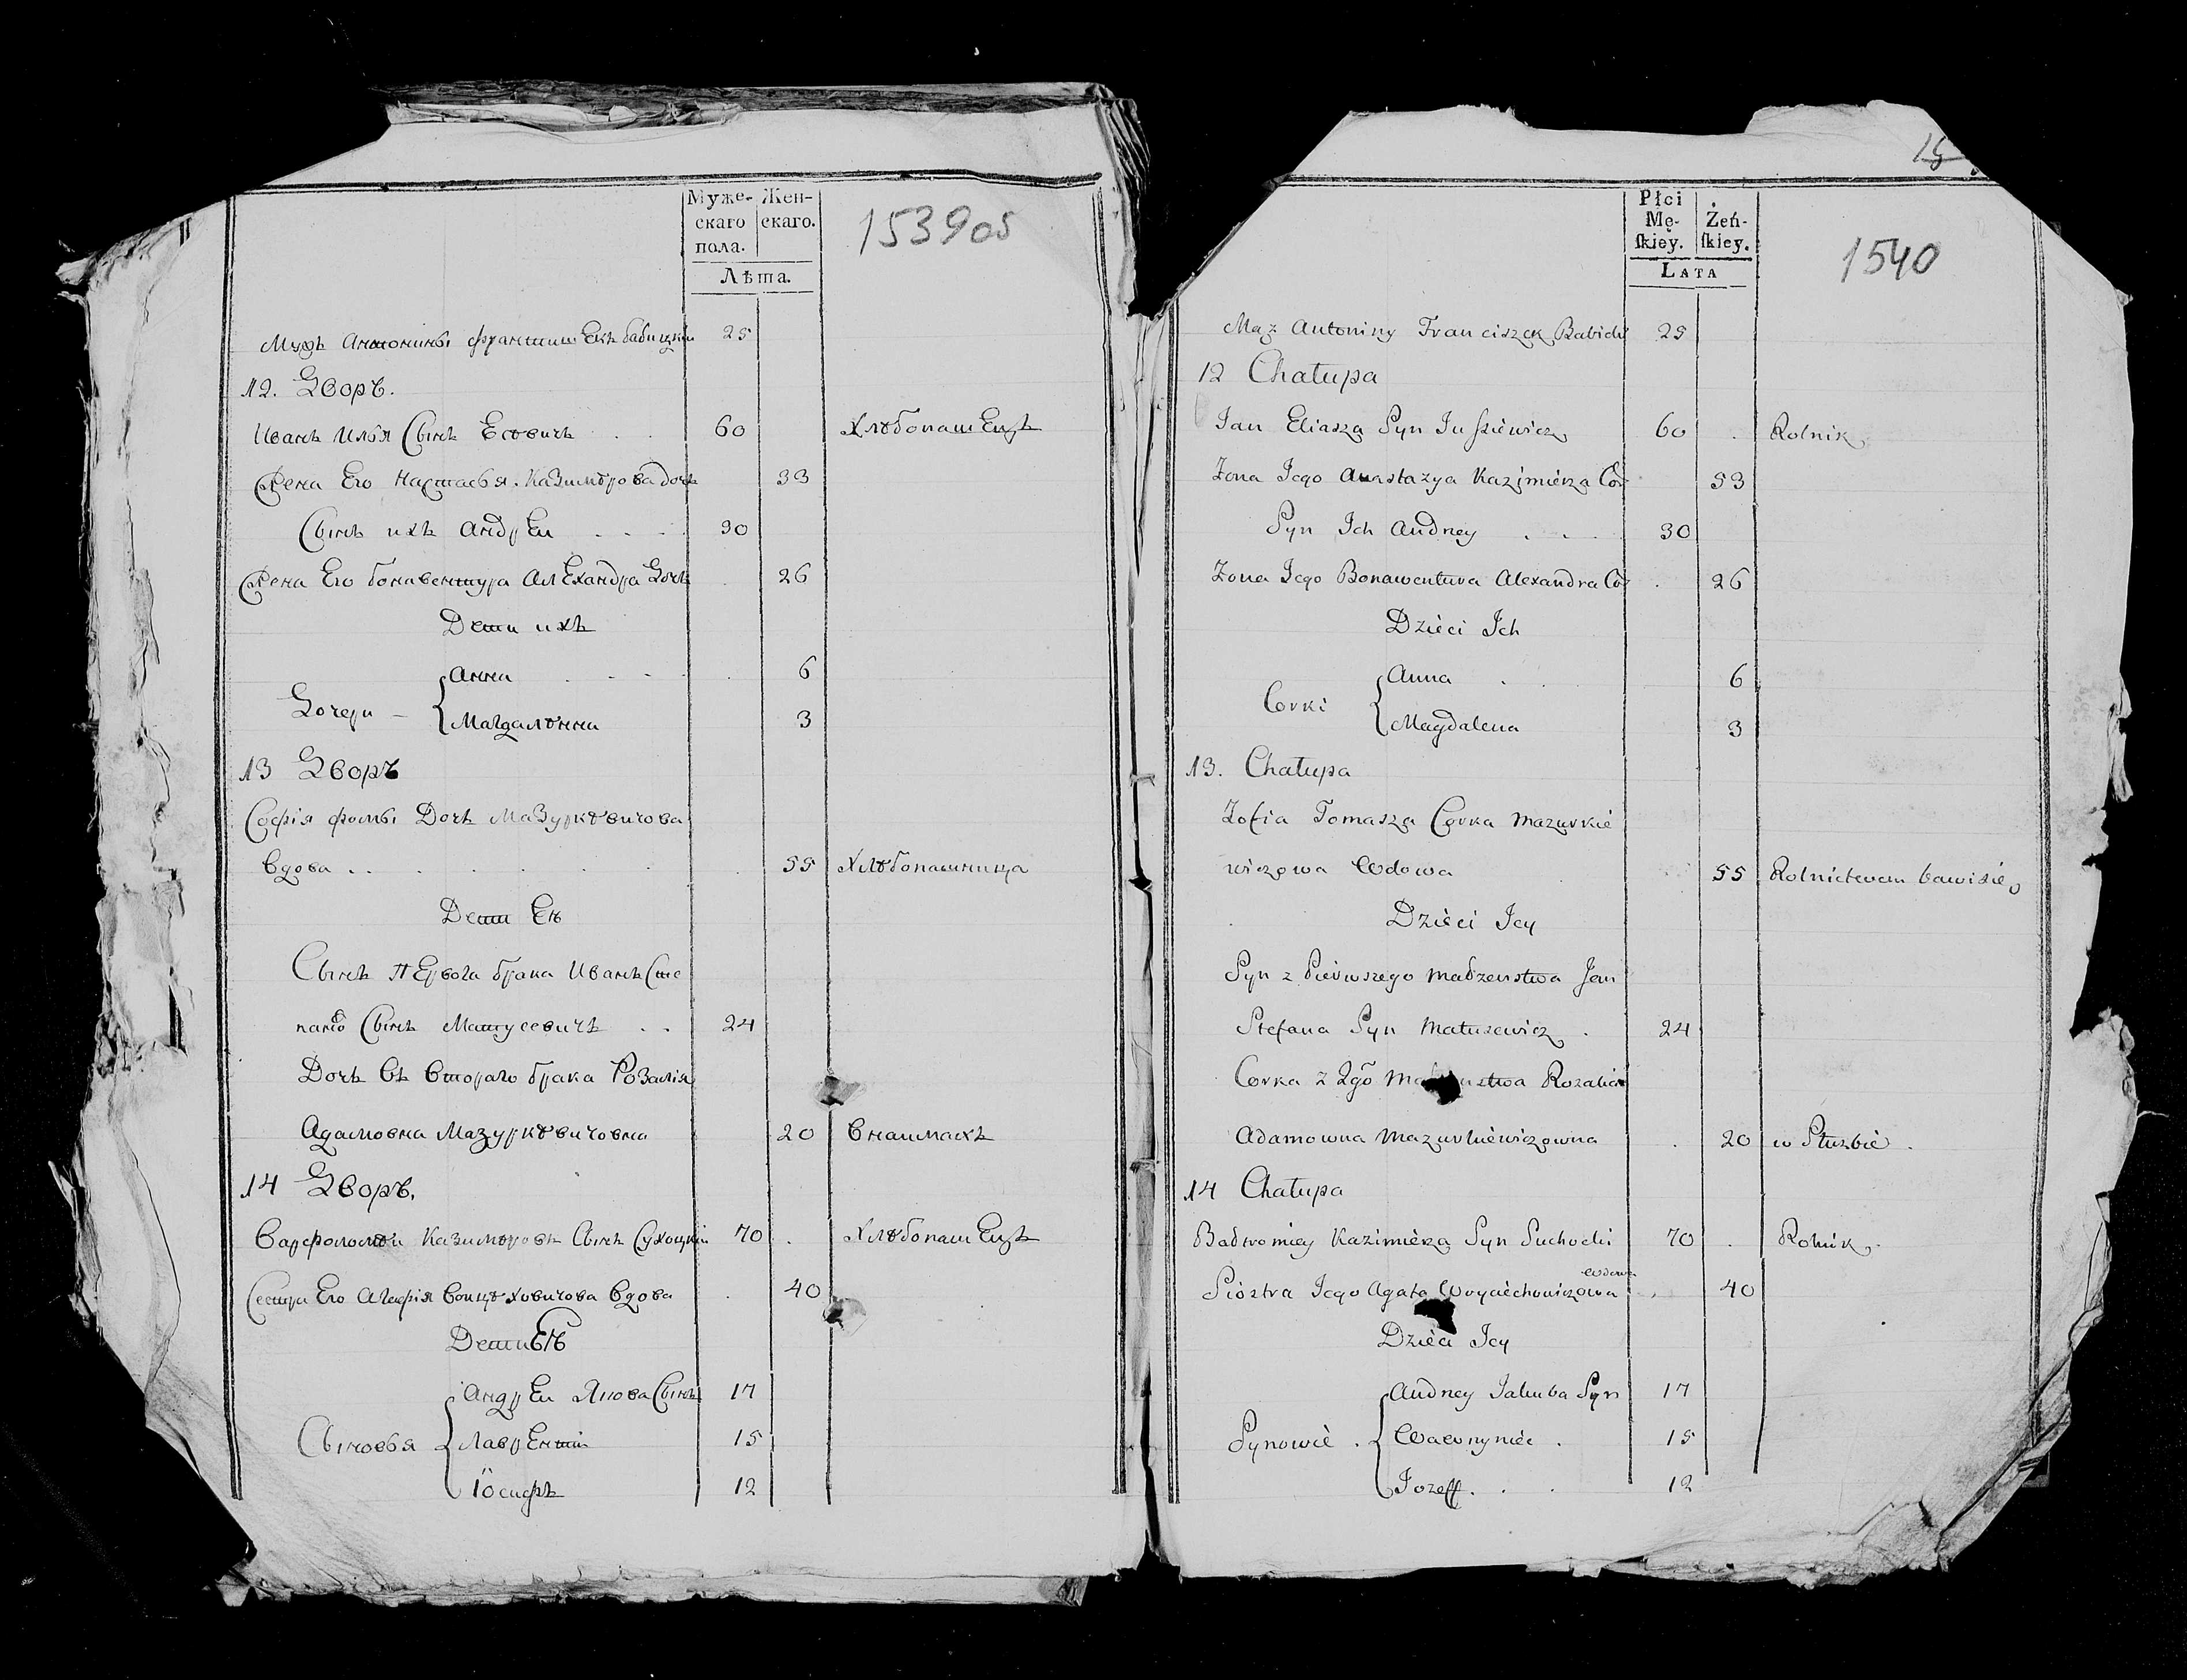 Муже-
скаго
пола.
Жен-
скаго.
Лѣта.
1539 об
Мужъ Антонины францишЕкъ бабицкии 25
12. Дворъ.
Иванъ Илья Сынъ Есѣвичъ . . 60 ХлѣбопашЕцъ
Жена Его Настасья Казимѣрова дочь 33
Сынъ ихъ АндрЕи . . . . 30
Жена Его бонавентура АлЕхандра Дочь . 26
Дети ихъ
Дочери –
Анна . . . . . 6
Магдалѣнна 3
13 Дворъ
Софія фомы Дочь Мазуркѣвичова
вдова . . . . . . . 55 Хлѣбопашница
Дети Еѣ
Сынъ пЕрвога брака Иванъ Сте
пановъ Сынъ Матусевичъ . . 24
Дочь въ втораго брака Розалія
Адамовна Мазуркѣвичовна 20 внаимахъ
14 Дворъ.
Варфоломѣи Казимѣровъ Сынъ Сухоцкіи 70 . ХлѣбопашЕцъ
Сестра Его Агафія воицѣховичова вдова . 40
Дети Еѣ
Сыновья
АндрЕи Якова Сынъ 17
ЛаврЕнтіи 15
Іосифъ 12
15
Płci
Mę-
ſkiey.
Żeń-
ſkiey.
LATA
1540
Maz Antoniny Franciszek Babicki 25
12 Chałupa
Jan Eliasza Syn Jusziewicz 60 . Rolnik
Zona Jego Anastazya Kazimierza Cór 53
Syn Ich Andrzey . . . 30
Zona Jego Bonawentura Alexandra Cór . 26
Dzieci Ich
Corki
Anna . . 6
Magdalena 3
13. Chałupa
Zofia Tomasza Corka Mazurkie
wiczowa Wdowa 55 Rolnictwem bawi sie
Dzieci Jey
Syn z Pierwszego małzenstwa Jan
Stefana Syn Matusewicz . 24
Corka z 2go Rozalia
Adamowna Mazurkiewiczowna . 20 w Służbie .
14 Chałupa
Bałtromiey Kazimierza Syn Suchocki 70 . Rolnik
Siostra Jego Agata Woyciechowiczowa Wdowa . 40
Dzieci Jey
Synowie .
Andrzey Jakuba Syn 17
Wawrzyniec . 15
Jozeff . . . 12